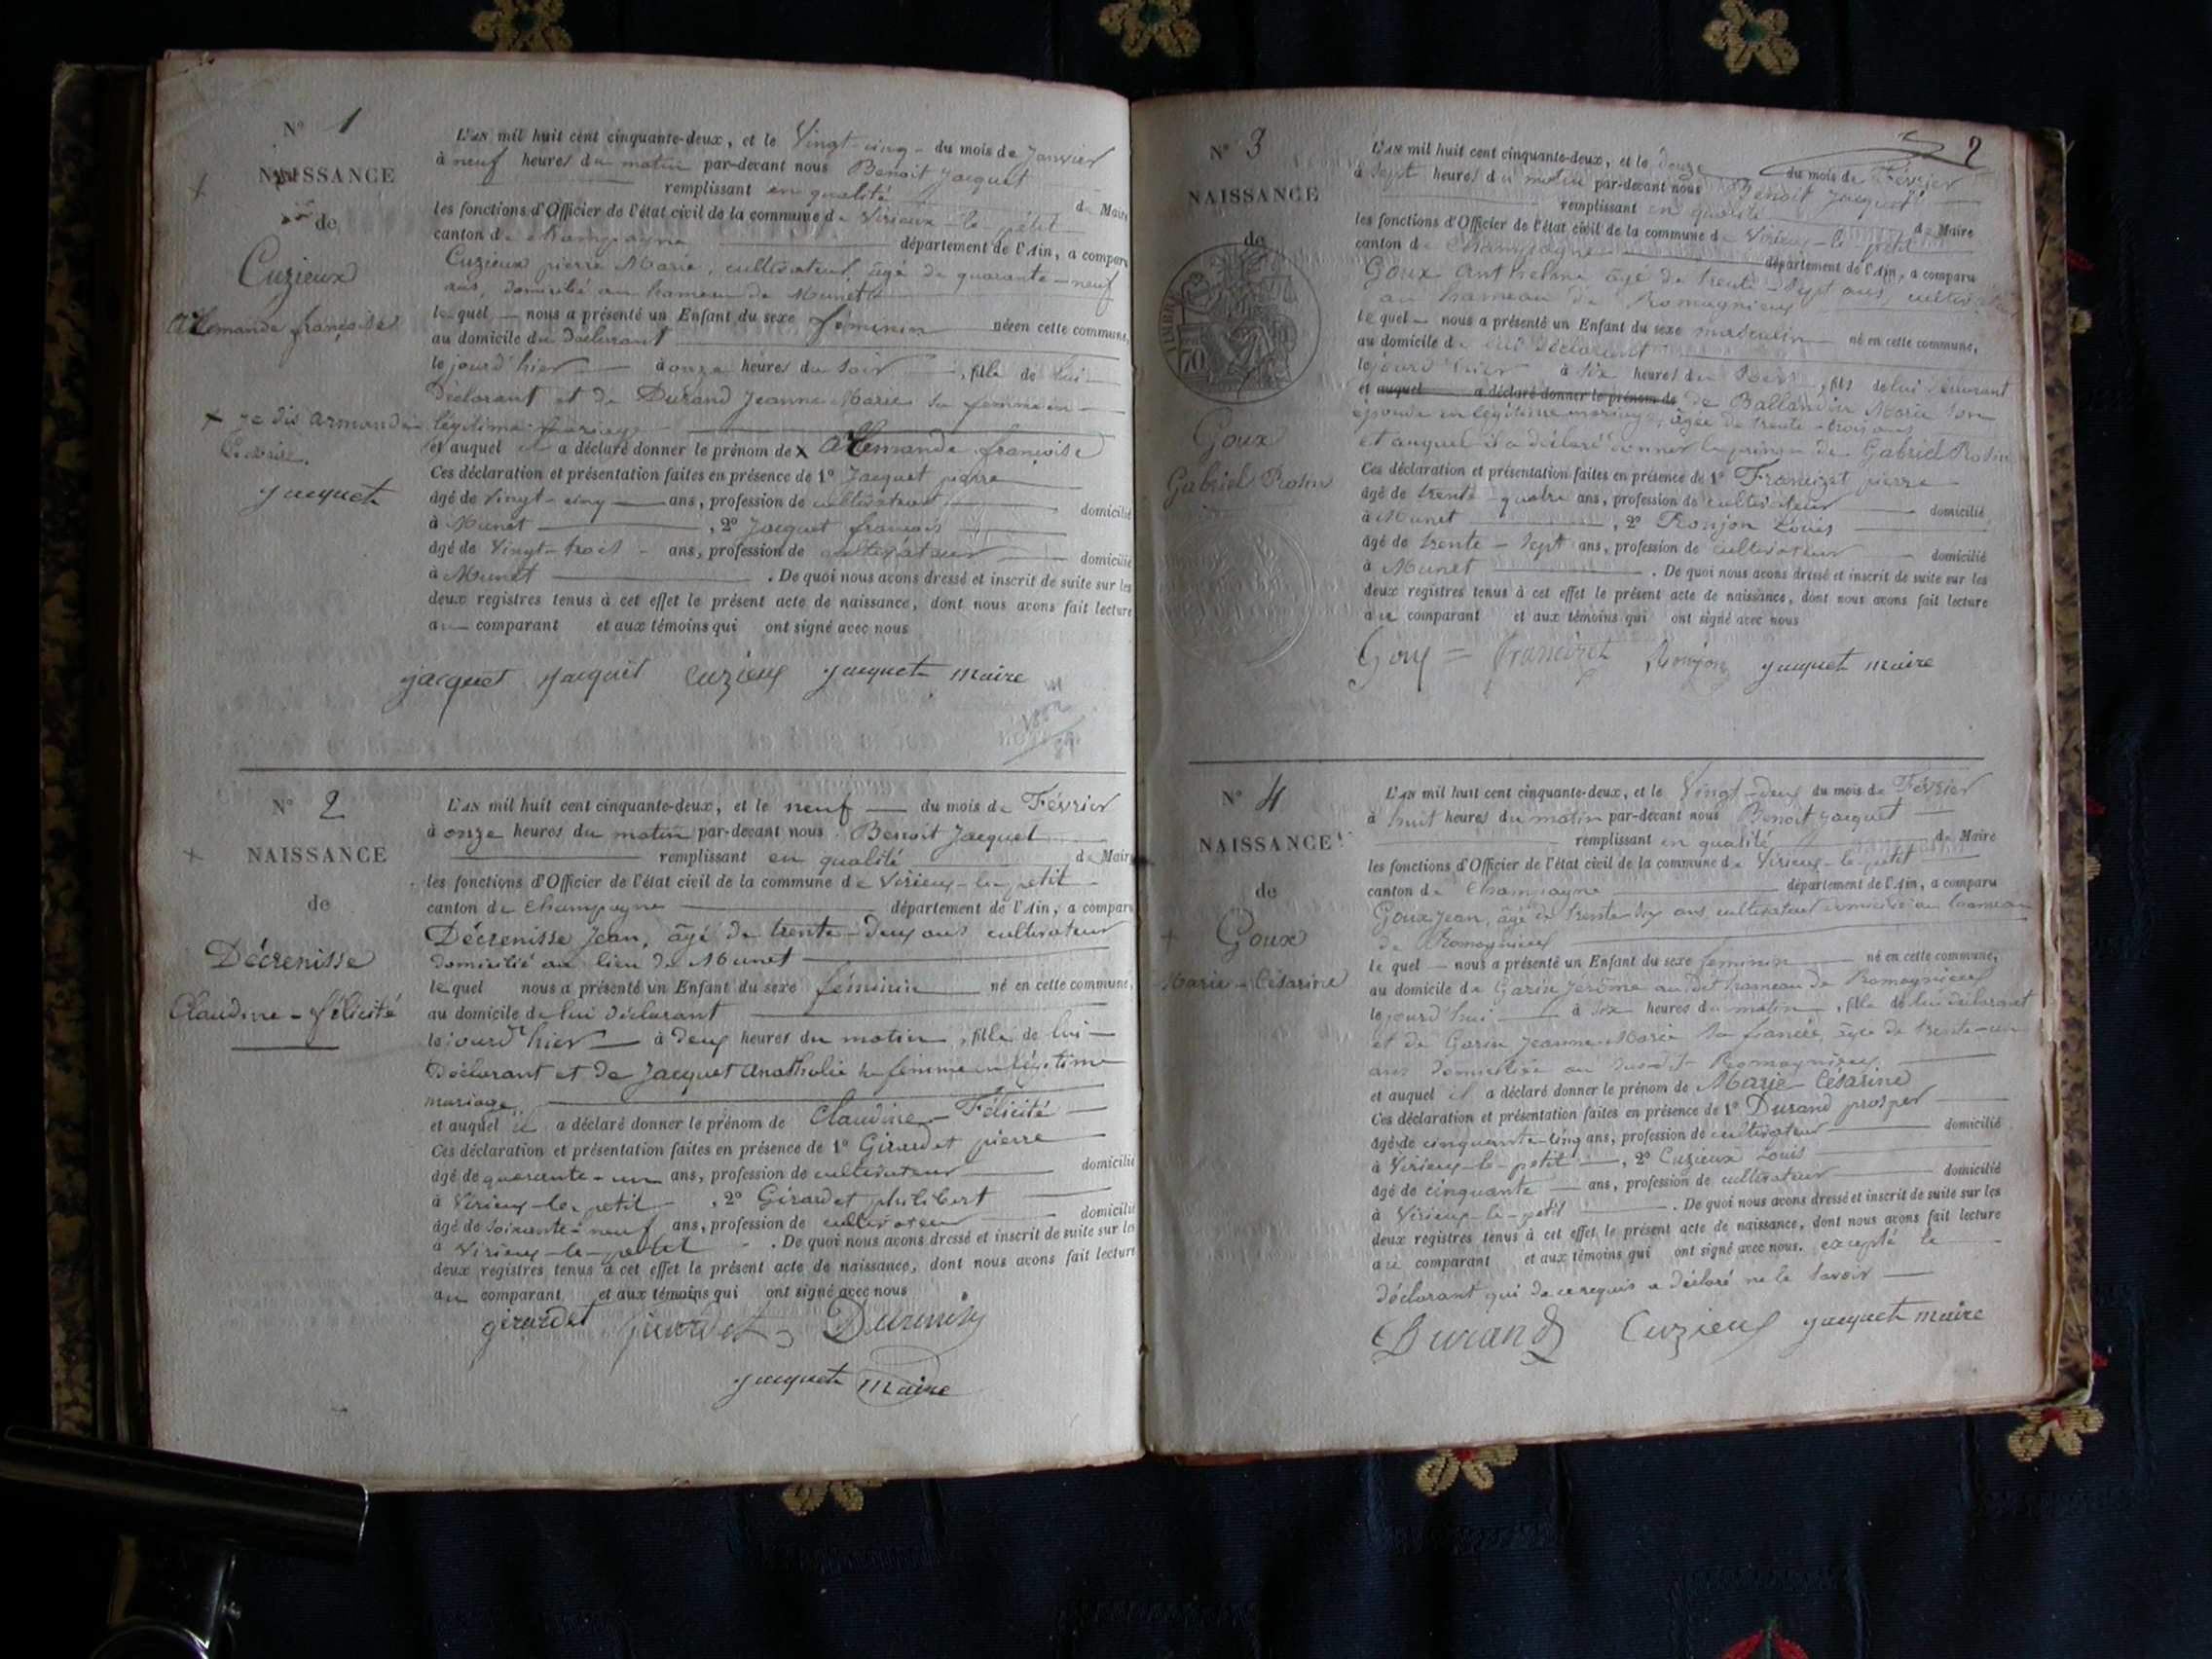 N° 1
NAISSANCE
de
Cuzieux
françoise
+ je dis armande
jacquet
L'AN mil huit cent cinquante-deux, et le Vingt-cinq du mois de Janvier
à neuf heures du matin par-devant nous Benoit Jacquet
remplissant en qualité de Maire
les fonctions d'Officier de l'état civil de la commune de Virieux-le-petit
canton de Champagne département de l'Ain, a comparu
Cuzieux pierre Marie, cultivateur, âgé de quarante-neuf
ans, domicilié au hameau de Munet
lequel nous a présenté un Enfant du sexe féminin né en cette commune,
au domicile du déclarant
le jourd'hier à onze heures du soir, fille de lui
déclarant et de Durand Jeanne Marie sa femme en
légitime mariage
et auquel il a déclaré donner le prénom de x françoise
Ces déclaration et présentation faites en présence de 1° Jacquet pierre
âgé de vingt-cinq ans, profession de cultivateur domicilié
à Munet, 2° Jacquet françois
âgé de vingt-trois ans, profession de cultivateur domicilié
à Munet. De quoi nous avons dressé et inscrit de suite sur les
deux registres tenus à cet effet le présent acte de naissance, dont nous avons fait lecture
au comparant et aux témoins qui ont signé avec nous
jacquet jacquet cuzieux jacquet maire
N° 2
NAISSANCE
de
Décrenisse
Claudine-Félicité
L'AN mil huit cent cinquante-deux, et le neuf du mois de Février
à onze heures du matin par-devant nous Benoit Jacquet
remplissant en qualité de Maire
les fonctions d'Officier de l'état civil de la commune de Virieux-le-petit
canton de Champagne département de l'Ain, a comparu
Décrenisse Jean, âgé de trente-deux ans cultivateur
domicilié au lieu de Munet
lequel nous a présenté un Enfant du sexe féminin né en cette commune,
au domicile de lui déclarant
le jourd'hier à deux heures du matin, fille de lui
déclarant et de Jacquet Anatholie sa femme en légitime
mariage
et auquel il a déclaré donner le prénom de Claudine-Félicité
Ces déclaration et présentation faites en présence de 1° Girardet pierre
âgé de quarante-un ans, profession de cultivateur domicilié
à Virieux-le-petit, 2° Girardet philibert
âgé de soixante-neuf ans, profession de cultivateur domicilié
à Virieux-le-petit. De quoi nous avons dressé et inscrit de suite sur les
deux registres tenus à cet effet le présent acte de naissance, dont nous avons fait lecture
au comparant et aux témoins qui ont signé avec nous
girardet girardet
jacquet maire
2
N° 3
NAISSANCE
de
TIMBRE
70
Goux
Gabriel Rosin
L'AN mil huit cent cinquante-deux, et le douze du mois de Février
à sept heures du matin par-devant nous Benoit Jacquet
remplissant en qualité de Maire
les fonctions d'Officier de l'état civil de la commune de Virieux-le-petit
canton de Champagne département de l'Ain, a comparu
Goux Anthelme âgé de trente-sept ans, cultivateur
au hameau de Romagnieux
lequel nous a présenté un Enfant du sexe masculin né en cette commune,
au domicile de lui déclarant
le jourd'hier à six heures du soir, fils de lui déclarant
et auquel et a déclaré donner le prénom de de Ballandin Marie son
épouse en légitime mariage, âgée de trente-trois ans
et auquel il a déclaré donner le prénom de Gabriel Rosin
Ces déclaration et présentation faites en présence de 1° Francizet pierre
âgé de trente-quatre ans, profession de cultivateur domicilié
à Munet, 2° Ronjon Louis
âgé de trente-sept ans, profession de cultivateur domicilié
à Munet. De quoi nous avons dressé et inscrit de suite sur les
deux registres tenus à cet effet le présent acte de naissance, dont nous avons fait lecture
au comparant et aux témoins qui ont signé avec nous
Goux francizet Ronjon jacquet maire
N° 4
NAISSANCE
de
Goux
Marie-Césarine
L'AN mil huit cent cinquante-deux, et le Vingt-deux du mois de Février
à huit heures du matin par-devant nous Benoit Jacquet
remplissant en qualité de Maire
les fonctions d'Officier de l'état civil de la commune de Virieux-le-petit
canton de Champagne département de l'Ain, a comparu
Goux Jean, âgé de trente-six ans, cultivateur domicilié au hameau
de Romagnieux
lequel nous a présenté un Enfant du sexe féminin né en cette commune,
au domicile de Garin Jerôme au dit hameau de Romagnieux
le jourd'hui à six heures du matin, fille de lui déclarant
et de Garin Jeanne-Marie sa fiancée, âgée de trente-un
ans domiciliée au susdit Romagnieux
et auquel il a déclaré donner le prénom de Marie Césarine
Ces déclaration et présentation faites en présence de 1° Durand prosper
âgé de cinquante-cinq ans, profession de cultivateur domicilié
à Virieux-le-petit, 2° Cuzieux Louis
âgé de cinquante ans, profession de cultivateur domicilié
à Virieux-le-petit. De quoi nous avons dressé et inscrit de suite sur les
deux registres tenus à cet effet le présent acte de naissance, dont nous avons fait lecture
au comparant et aux témoins qui ont signé avec nous. excepté le
déclarant qui de ce requis a déclaré ne le savoir
Durand Cuzieux jacquet maire